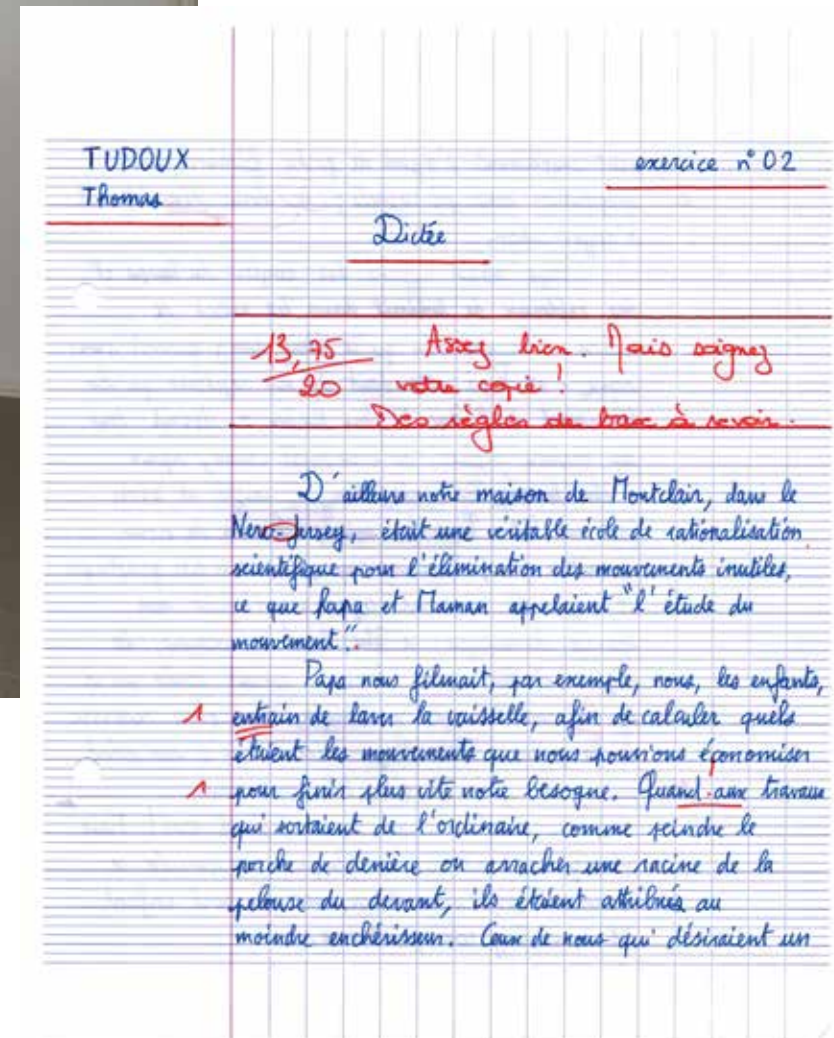 TUDOUX
exercice n° 02
Thomas
Dictée
13,75
20
Assez bien. Mais soignez
votre copie !
Des règles de base à revoir.
D'ailleurs notre maison de Montclair, dans le
New-Jersey, était une véritable école de rationalisation
scientifique pour l'élimination des mouvements inutiles,
ce que Papa et Maman appelaient "l'étude du
mouvement".
Papa nous filmait, par exemple, nous, les enfants,
1 entrain de laver la vaisselle, afin de calculer quels
étaient les mouvements que nous pouvions économiser
1 pour finir plus vite notre besogne. Quand aux travaux
qui sortaient de l'ordinaire, comme peindre le
porche de derrière ou arracher une racine de la
pelouse du devant, ils étaient attribués au
moindre enchérisseur. Ceux de nous qui désiraient un